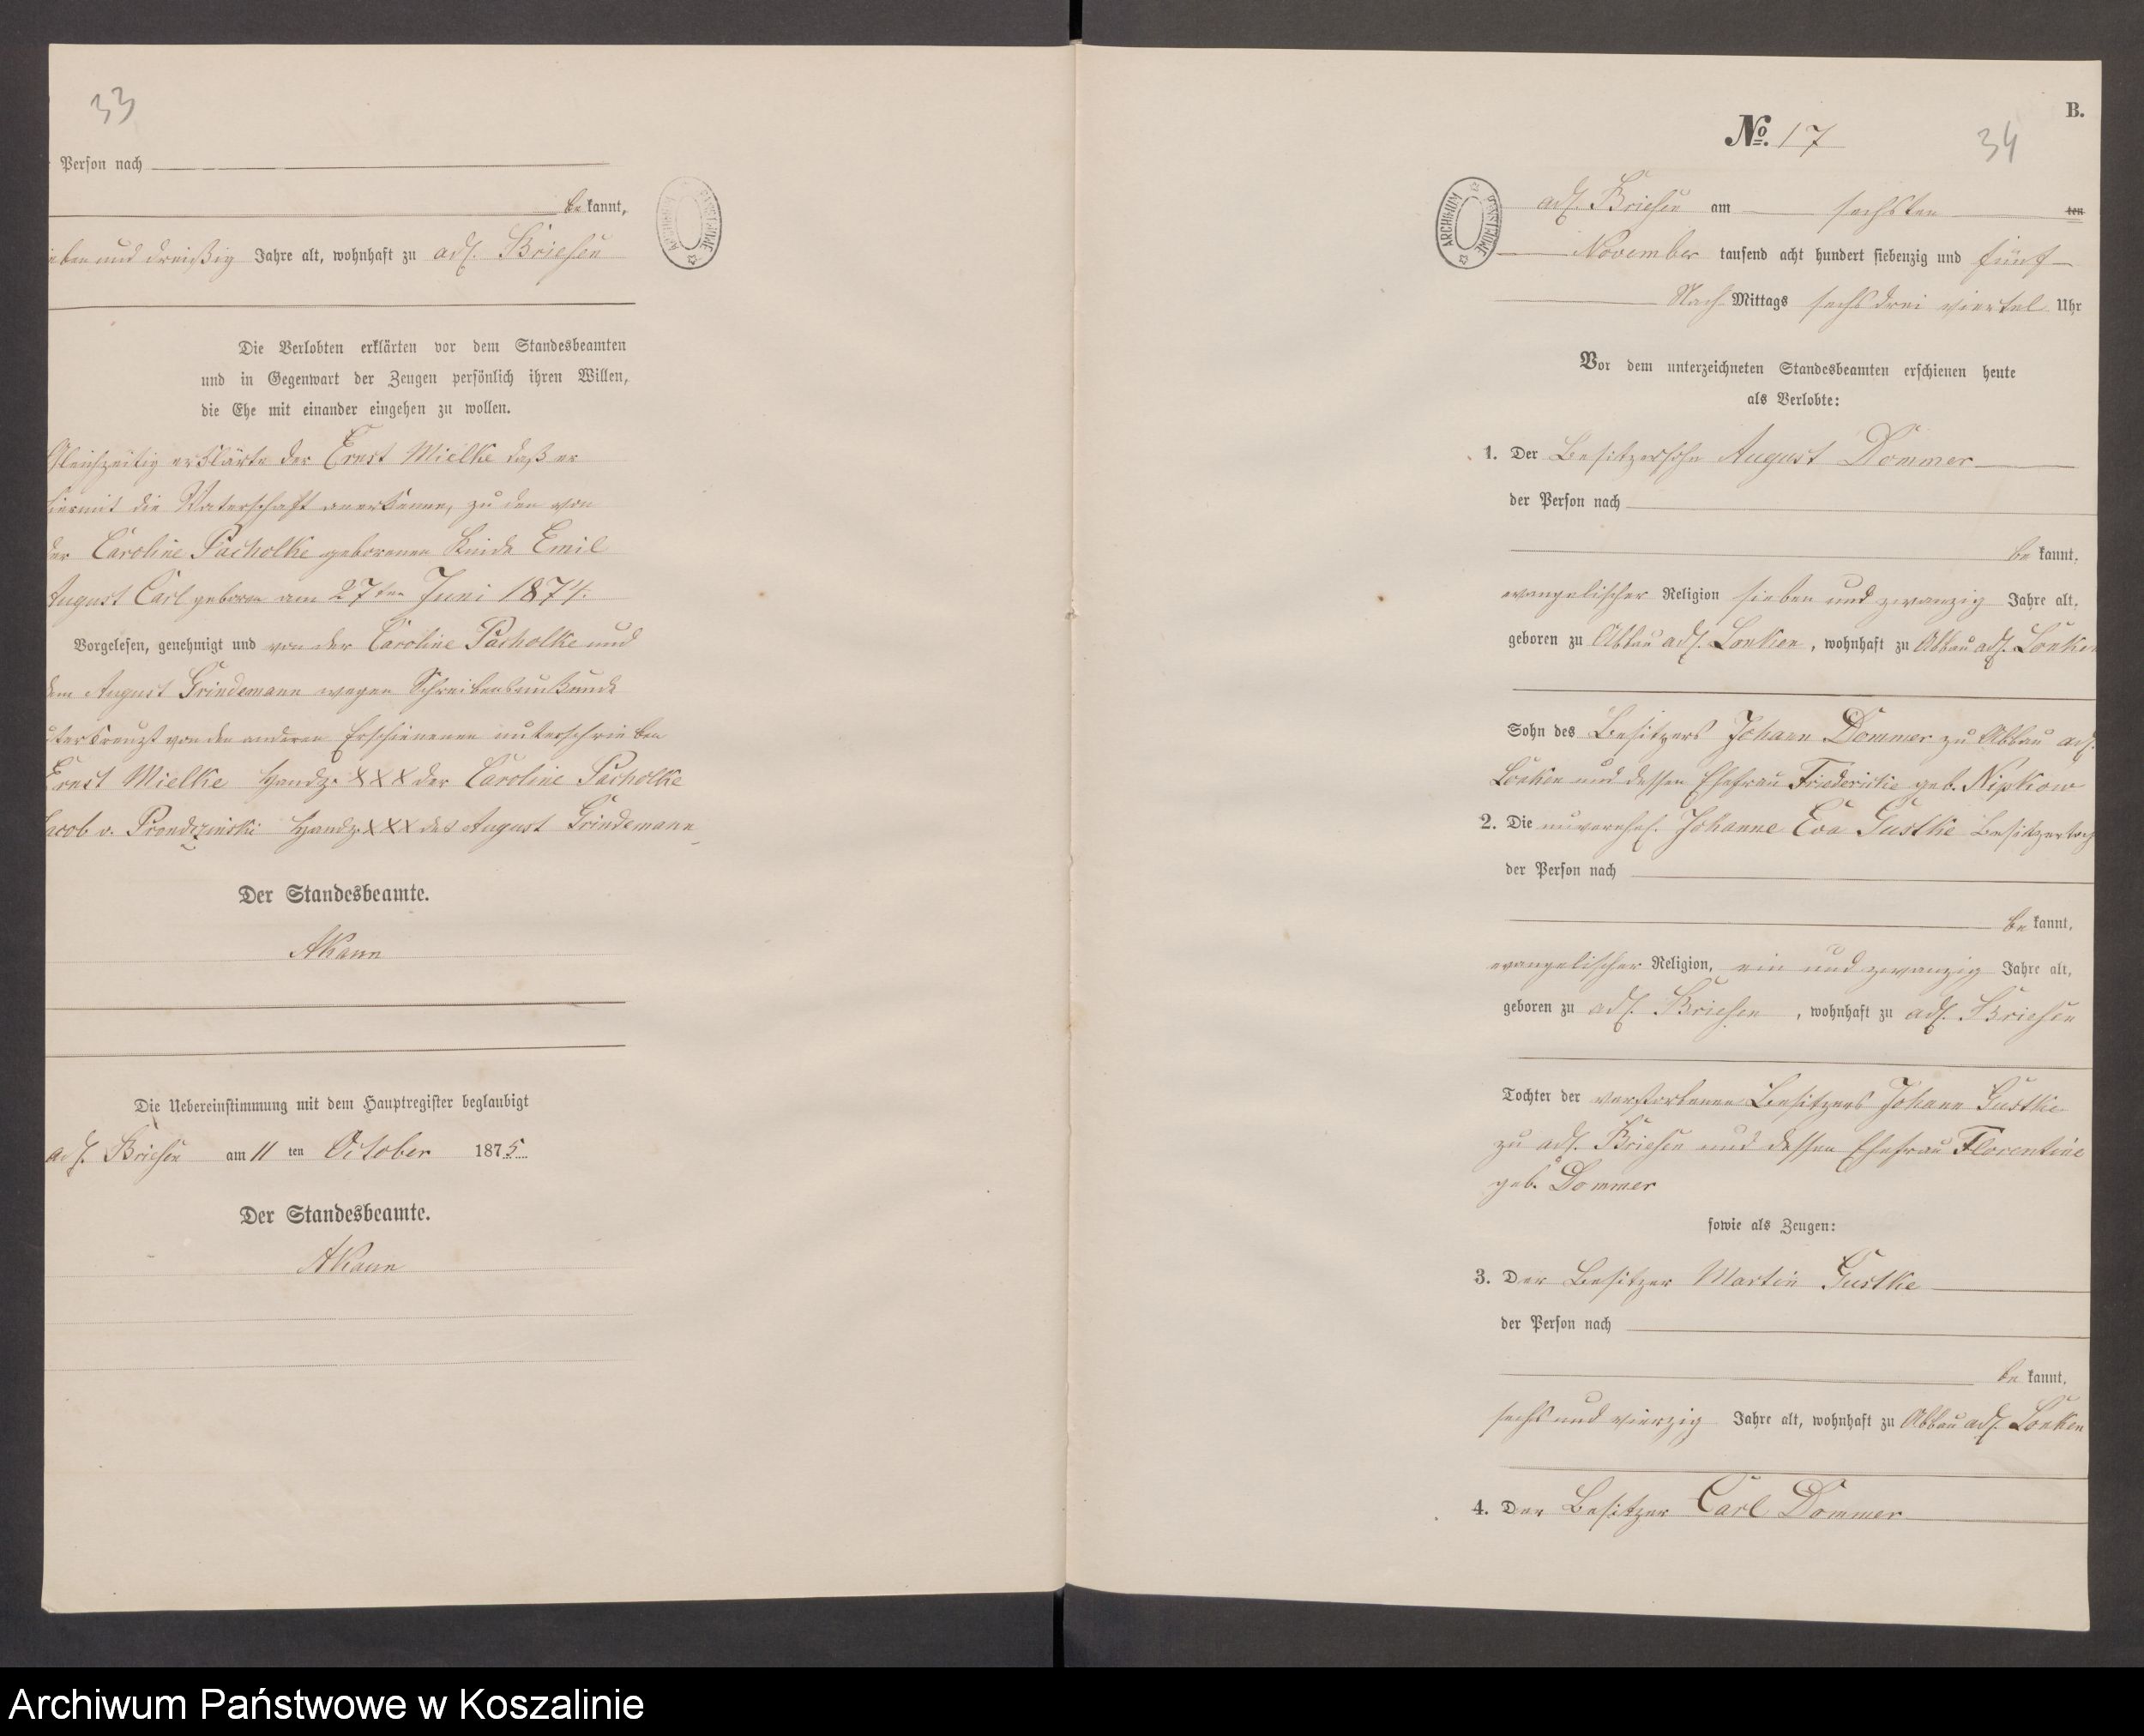 33
Person nach
be kannt,
eben und dreißig Jahre alt, wohnhaft zu adl. Briesen
Die Verlobten erklärten vor dem Standesbeamten
und in Gegenwart der Zeugen persönlich ihren Willen,
die Ehe mit einander eingehen zu wollen.
Gleichzeitig erklärte der Ernst Mielke daß er
hiermit die Vaterschaft anerkenne, zu den von
der Caroline Pacholke geborenen Kinde Emil
August Carl geboren am 27ten Juni 1874.
Vorgelesen, genehmigt und von der Caroline Pacholke und
dem August Grindemann wegen Schreibensunkunde
unterkreuzt von den anderen Erschienenen unterschrieben
Ernst Mielke Handz. XXX der Caroline Pacholke
Jacob v. Prondzinski Handz. XXX des August Grindemann
Der Standesbeamte.
AKann
Die Uebereinstimmung mit dem Hauptregister beglaubigt
adl. Briesen am 11 ten October 1875
Der Standesbeamte.
AKann
B.
No. 17
34
ARCHIWUM PAŃSTWOWE
adl. Briesen am sechsten ten
November tausend acht hundert siebenzig und fünf
Nach Mittags sechs drei viertel Uhr
Vor dem unterzeichneten Standesbeamten erschienen heute
als Verlobte:
1. Der Besitzersohn August Dommer
der Person nach
be kannt,
evangelischer Religion sieben und zwanzig Jahre alt,
geboren zu Abbau adl. Lonken, wohnhaft zu Abbau adl. Lonken
Sohn des Besitzers Johann Dommer zu Abbau adl.
Lonken und dessen Ehefrau Friedericke geb. Nipkow
2. Die unverehel. Johanne Eva Gustke Besitzertoch
der Person nach
be kannt,
evangelischer Religion, ein und zwanzig Jahre alt,
geboren zu adl. Briesen, wohnhaft zu adl. Briesen
Tochter der verstorbenen Besitzers Johann Gustke
zu adl. Briesen und dessen Ehefrau Florentine
geb. Dommer
sowie als Zeugen:
3. Der Besitzer Martin Gustke
der Person nach
be kannt,
sechs und vierzig Jahre alt, wohnhaft zu Abbau adl. Lonken
4. Der Besitzer Carl Dommer
Archiwum Państwowe w Koszalinie